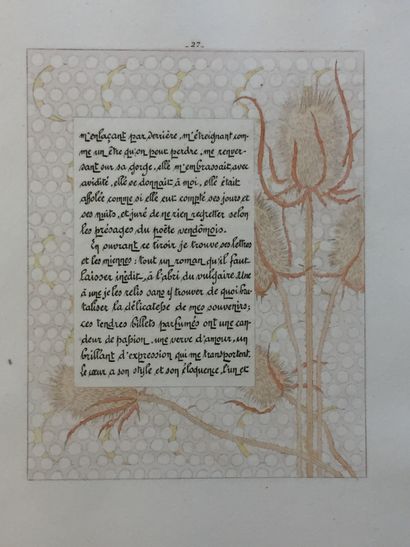 - 27 -
m'enlaçant par derrière, m'étreignant com-
me un être qu'on peut perdre, me renver-
sant sur sa gorge, elle m'embrassait avec
avidité, elle se donnait à moi, elle était
affolée comme si elle eut compté ses jours et
ses nuits, et juré de ne rien regretter selon
les présages du poëte vendômois.
En ouvrant ce tiroir je trouve ses lettres
et les miennes : tout un roman qu'il faut
laisser inédit, à l'abri du vulgaire. Une
à une je les relis sans y trouver de quoi bru-
taliser la délicatesse de mes souvenirs;
ces tendres billets parfumés ont une can-
deur de passion, une verve d'amour, un
brillant d'expression qui me transportent,
le cœur a son style et son éloquence, l'un et